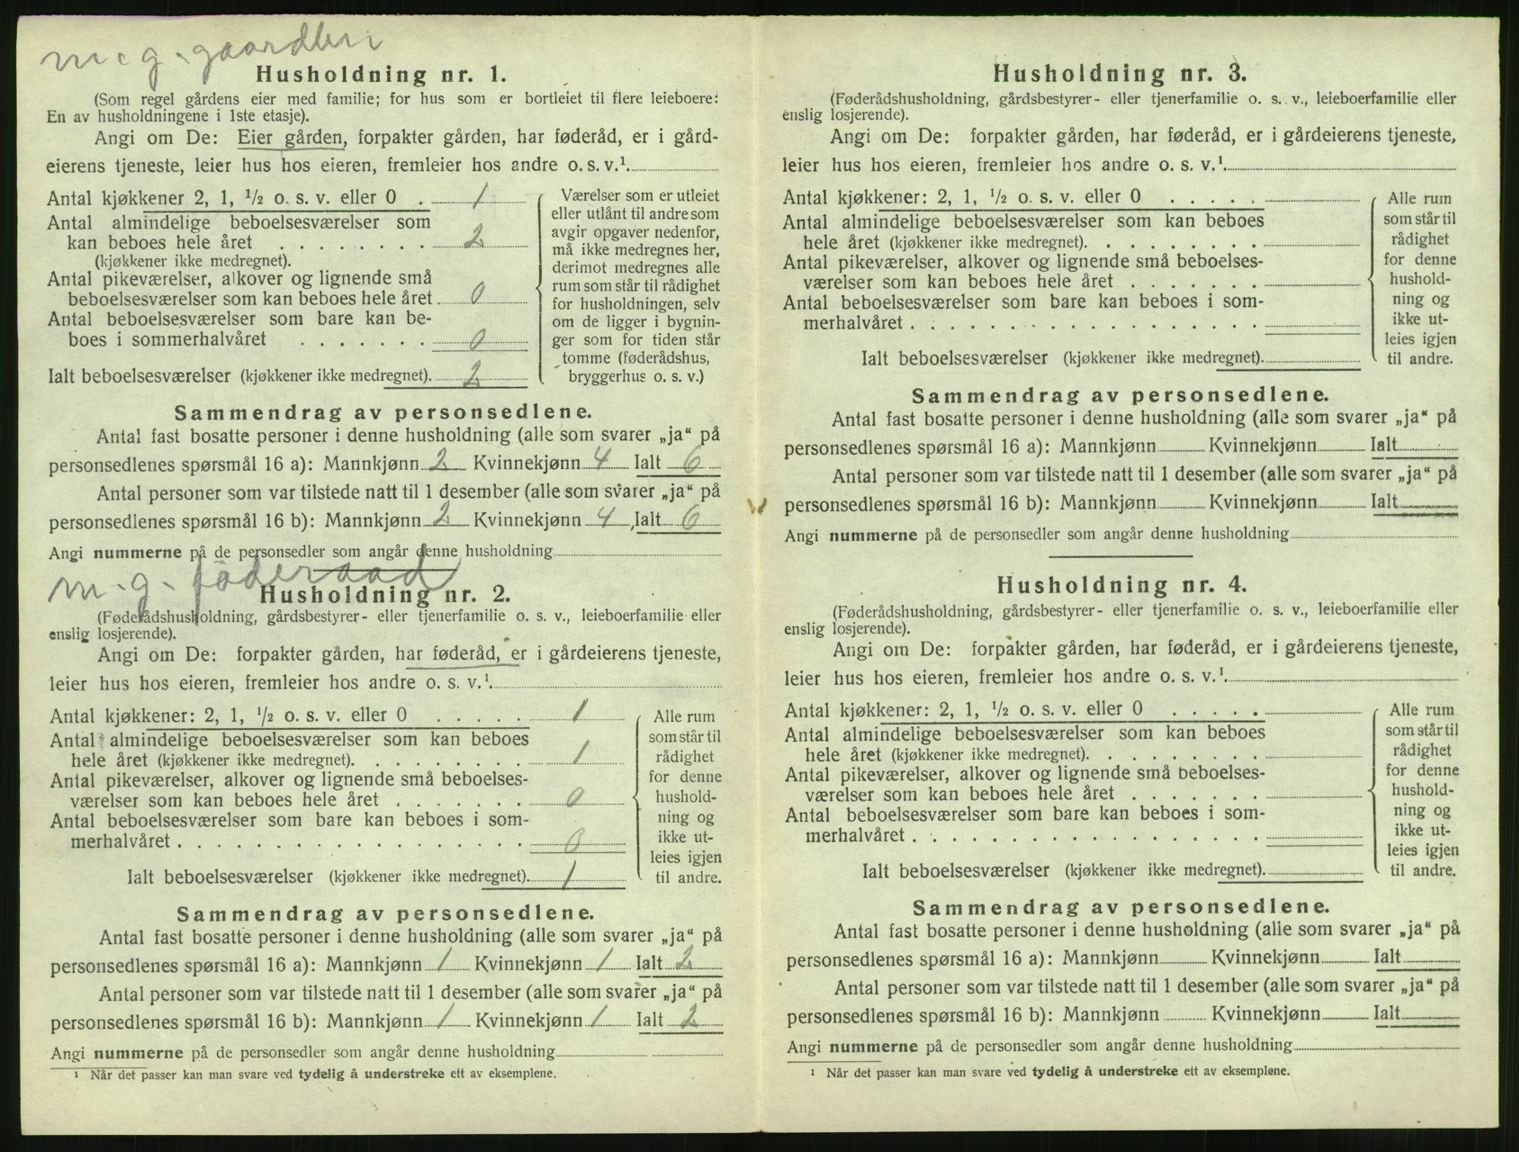 Husholdning nr. 1.
(Som regel gårdens eier med familie; for hus som er bortleiet til flere leieboere:
En av husholdningene i 1ste etasje).
Angi om De: Eier gården, forpakter gården, har føderåd, er i gård-
eierens tjeneste, leier hus hos eieren, fremleier hos andre o. s. v.¹.
Antal kjøkkener 2, 1, ½ o. s. v. eller 0 . 1
Antal almindelige beboelsesværelser som
kan beboes hele året . . . . . . . . 2
(kjøkkener ikke medregnet).
Antal pikeværelser, alkover og lignende små
beboelsesværelser som kan beboes hele året. 0
Antal beboelsesværelser som bare kan be-
boes i sommerhalvåret . . . . . . . 0
Ialt beboelsesværelser (kjøkkener ikke medregnet). 2
Værelser som er utleiet
eller utlånt til andre som
avgir opgaver nedenfor,
må ikke medregnes her,
derimot medregnes alle
rum som står til rådighet
for husholdningen, selv
om de ligger i bygnin-
ger som for tiden står
tomme (føderådshus,
bryggerhus o. s. v.)
Sammendrag av personsedlene.
Antal fast bosatte personer i denne husholdning (alle som svarer „ja“ på
personsedlenes spørsmål 16 a): Mannkjønn 2 Kvinnekjønn 4 Ialt 6
Antal personer som var tilstede natt til 1 desember (alle som svarer „ja“ på
personsedlenes spørsmål 16 b): Mannkjønn 2 Kvinnekjønn 4, Ialt 6
Angi nummerne på de personsedler som angår denne husholdning
m. g. føderaad
Husholdning nr. 2.
(Føderådshusholdning, gårdsbestyrer- eller tjenerfamilie o. s. v., leieboerfamilie eller
enslig losjerende).
Angi om De: forpakter gården, har føderåd, er i gårdeierens tjeneste,
leier hus hos eieren, fremleier hos andre o. s. v.¹.
Antal kjøkkener: 2, 1, ½ o. s. v. eller 0 . . . . . 1
Antal almindelige beboelsesværelser som kan beboes
hele året (kjøkkener ikke medregnet). . . . . . . . . 1
Antal pikeværelser, alkover og lignende små beboelses-
værelser som kan beboes hele året . . . . . . . 0
Antal beboelsesværelser som bare kan beboes i som-
merhalvåret . . . . . . . . . . . . . . . . . . 0
Ialt beboelsesværelser (kjøkkener ikke medregnet). 1
Alle rum
som står til
rådighet
for denne
hushold-
ning og
ikke ut-
leies igjen
til andre.
Sammendrag av personsedlene.
Antal fast bosatte personer i denne husholdning (alle som svarer „ja“ på
personsedlenes spørsmål 16 a): Mannkjønn 1 Kvinnekjønn 1 Ialt 2
Antal personer som var tilstede natt til 1 desember (alle som svarer „ja“ på
personsedlenes spørsmål 16 b): Mannkjønn 1 Kvinnekjønn 1 Ialt 2
Angi nummerne på de personsedler som angår denne husholdning
¹ Når det passer kan man svare ved tydelig å understreke ett av eksemplene.
Husholdning nr. 3.
(Føderådshusholdning, gårdsbestyrer- eller tjenerfamilie o. s. v., leieboerfamilie eller
enslig losjerende).
Angi om De: forpakter gården, har føderåd, er i gårdeierens tjeneste,
leier hus hos eieren, fremleier hos andre o. s. v.¹.
Antal kjøkkener: 2, 1, ½ o. s. v. eller 0 . . . . .
Antal almindelige beboelsesværelser som kan beboes
hele året (kjøkkener ikke medregnet). . . . . . . . .
Antal pikeværelser, alkover og lignende små beboelses-
værelser som kan beboes hele året . . . . . . .
Antal beboelsesværelser som bare kan beboes i som-
merhalvåret . . . . . . . . . . . . . . . . . .
Ialt beboelsesværelser (kjøkkener ikke medregnet).
Alle rum
som står til
rådighet
for denne
hushold-
ning og
ikke ut-
leies igjen
til andre.
Sammendrag av personsedlene.
Antal fast bosatte personer i denne husholdning (alle som svarer „ja“ på
personsedlenes spørsmål 16 a): Mannkjønn Kvinnekjønn Ialt
Antal personer som var tilstede natt til 1 desember (alle som svarer „ja“ på
personsedlenes spørsmål 16 b): Mannkjønn Kvinnekjønn Ialt
Angi nummerne på de personsedler som angår denne husholdning
Husholdning nr. 4.
(Føderådshusholdning, gårdsbestyrer- eller tjenerfamilie o. s. v., leieboerfamilie eller
enslig losjerende).
Angi om De: forpakter gården, har føderåd, er i gårdeierens tjeneste,
leier hus hos eieren, fremleier hos andre o. s. v.¹.
Antal kjøkkener: 2, 1, ½ o. s. v. eller 0 . . . . .
Antal almindelige beboelsesværelser som kan beboes
hele året (kjøkkener ikke medregnet). . . . . . . . .
Antal pikeværelser, alkover og lignende små beboelses-
værelser som kan beboes hele året . . . . . . .
Antal beboelsesværelser som bare kan beboes i som-
merhalvåret . . . . . . . . . . . . . . . . . .
Ialt beboelsesværelser (kjøkkener ikke medregnet).
Alle rum
som står til
rådighet
for denne
hushold-
ning og
ikke ut-
leies igjen
til andre.
Sammendrag av personsedlene.
Antal fast bosatte personer i denne husholdning (alle som svarer „ja“ på
personsedlenes spørsmål 16 a): Mannkjønn Kvinnekjønn Ialt
Antal personer som var tilstede natt til 1 desember (alle som svarer „ja“ på
personsedlenes spørsmål 16 b): Mannkjønn Kvinnekjønn Ialt
Angi nummerne på de personsedler som angår denne husholdning
¹ Når det passer kan man svare ved tydelig å understreke ett av eksemplene.